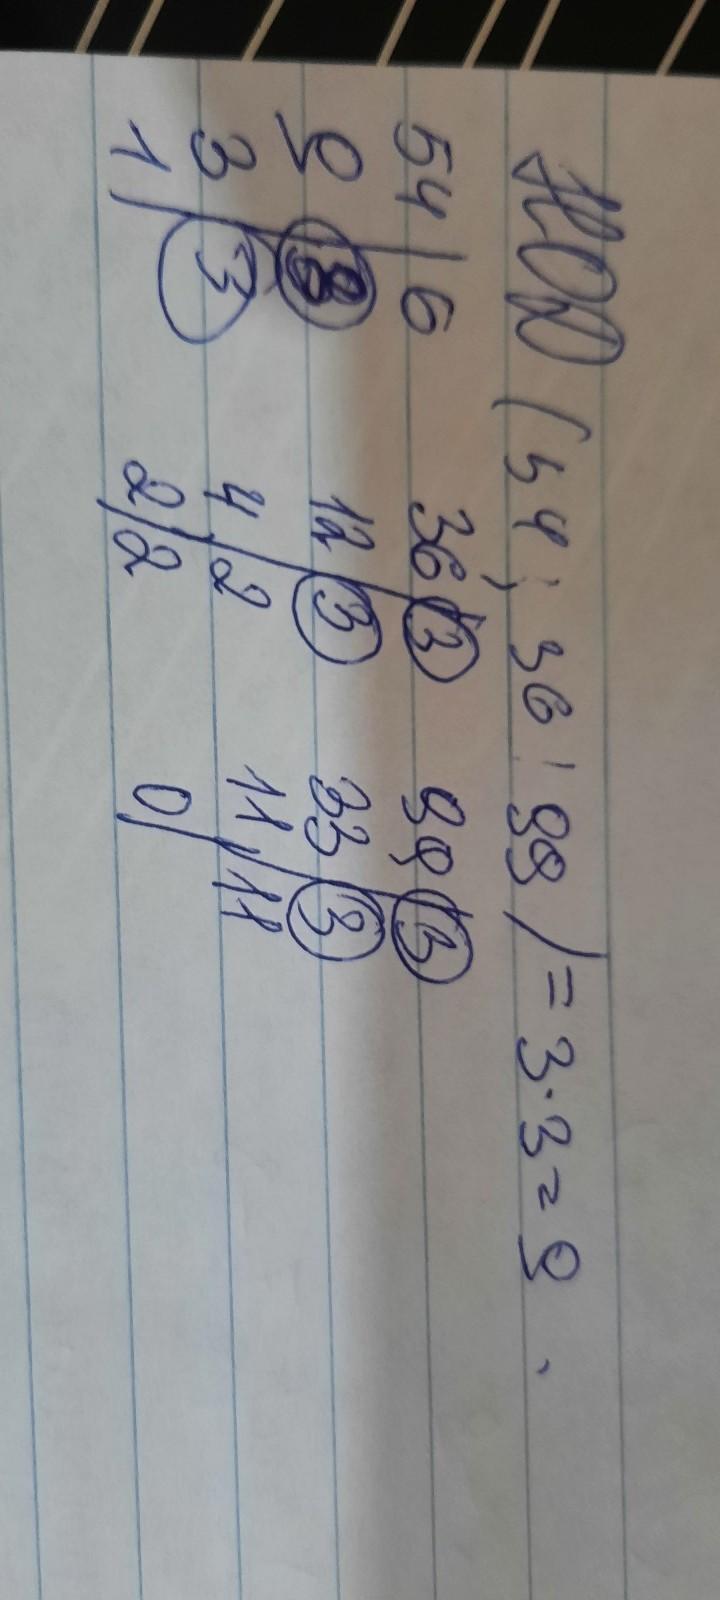 НОД (54; 36; 99) = 3·3=9.
54 | 6 36 | 3 99 | 3
9 | 3 12 | 3 33 | 3
3 | 3 4 | 2 11 | 11
1 | 2 | 2 0 |